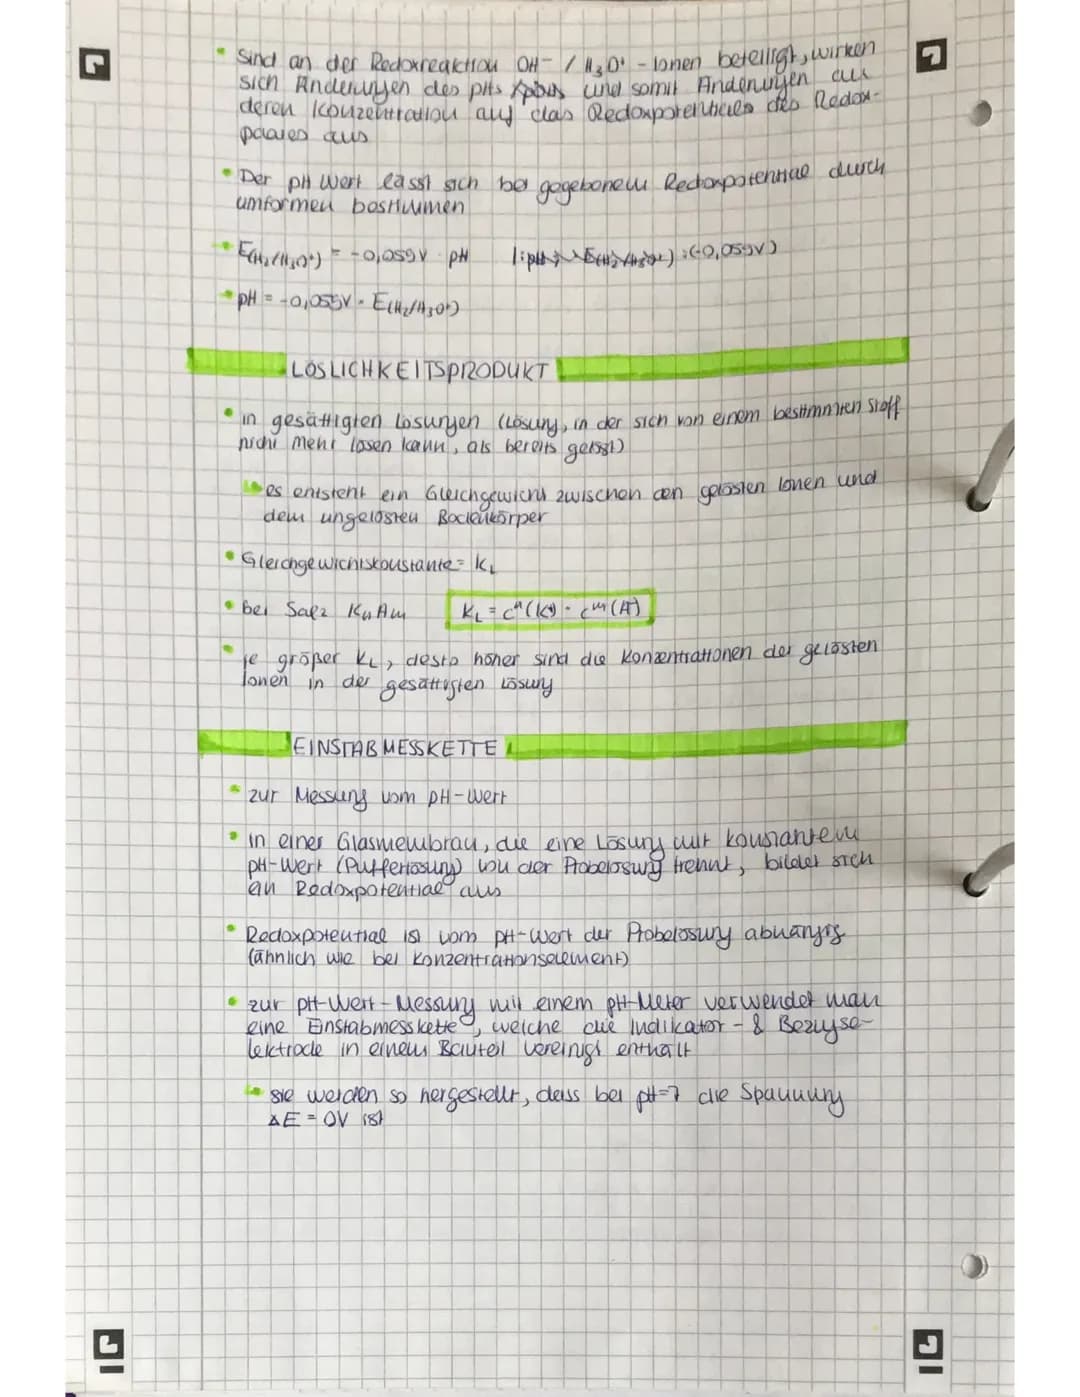 • Sind an der Redoxreaktion OH⁻ / H₃O⁺ - Ionen beteiligt, wirken
sich Änderungen des pHs und somit Änderungen
deren Konzentration auf das Redoxpotentials des Redox-
paares aus
• Der pH Wert lässt sich bei gegebenem Redoxpotential durch
umformen bestimmen
• E(H₂/H₃O⁺) = -0,059V · pH | : (-0,059V)
• pH = -0,055V · E(H₂/H₃O⁺)
LÖSLICHKEITSPRODUKT
• in gesättigten Lösungen (Lösung, in der sich von einem bestimmten Stoff
nicht mehr lösen kann, als bereits gelöst)
↳ es entsteht ein Gleichgewicht zwischen den gelösten Ionen und
dem ungelösten Bodenkörper
• Gleichgewichtskonstante = K_L
• bei Salz KnAm K_L = cⁿ(K⁺) · cᵐ(A⁻)
• je größer K_L, desto höher sind die Konzentrationen der gelösten
Ionen in der gesättigten Lösung
EINSTABMESSKETTE
• zur Messung vom pH-Wert
• in einer Glasmembran, die eine Lösung mit konstantem
pH-Wert (Pufferlösung) von der Probelösung trennt, bildet sich
ein Redoxpotential aus
• Redoxpotential ist vom pH-Wert der Probelösung abhängig
(ähnlich wie bei Konzentrationselement)
• zur pH-Wert-Messung mit einem pH-Meter verwendet man
eine Einstabmesskette, welche die Indikator- & Bezugse-
lektrode in einem Bauteil vereinigt enthält
↳ sie werden so hergestellt, dass bei pH=7 die Spannung
ΔE = 0V ist